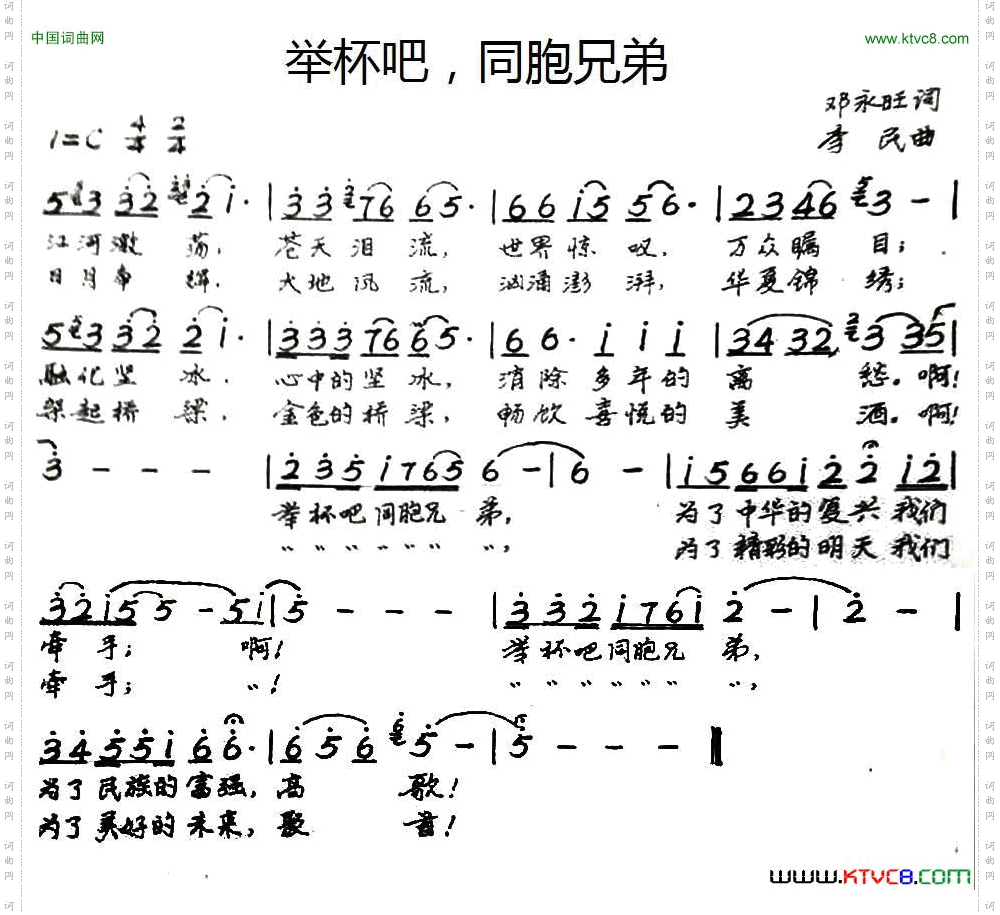 中国词曲网
www.ktvc8.com
举杯吧，同胞兄弟
邓永旺词
李 民曲
1=C 4/4 2/4
5 3 3 3 2 2 1 · | 3 3 7 6 6 5 · | 6 6 1 5 5 6 · | 2 3 4 6 3 - |
江河激 荡， 苍天泪 流， 世界惊 叹， 万众瞩 目；
日月争 辉， 大地风 流， 汹涌澎 湃， 华夏锦 绣；
5 3 3 3 2 2 1 · | 3 3 3 7 6 6 5 · | 6 6 · 1 1 1 | 3 4 3 2, 3 3 5 |
融化坚 冰， 心中的坚 冰， 消除多年的 离 愁。啊！
架起桥 梁， 金色的桥 梁， 畅饮喜悦的 美 酒。啊！
3 - - - | 2 3 5 1 7 6 5 6 - | 6 - | 1 5 6 6 1 2 2 1 2 |
举杯吧同胞兄 弟， 为了中华的复兴我们
" " " " " " "， 为了精彩的明天我们
3 2 1 5 5 - 5 1 | 5 - - - | 3 3 2 1 7 6 1 2 - | 2 - |
牵 手； 啊！ 举杯吧同胞兄 弟，
牵 手； "！ " " " " " " "，
3 4 5 5 1 6 6 · | 6 5 6 5 - | 5 - - - ‖
为了民族的富强，高 歌！
为了美好的未来，聚 首！
www.KTVC8.COM